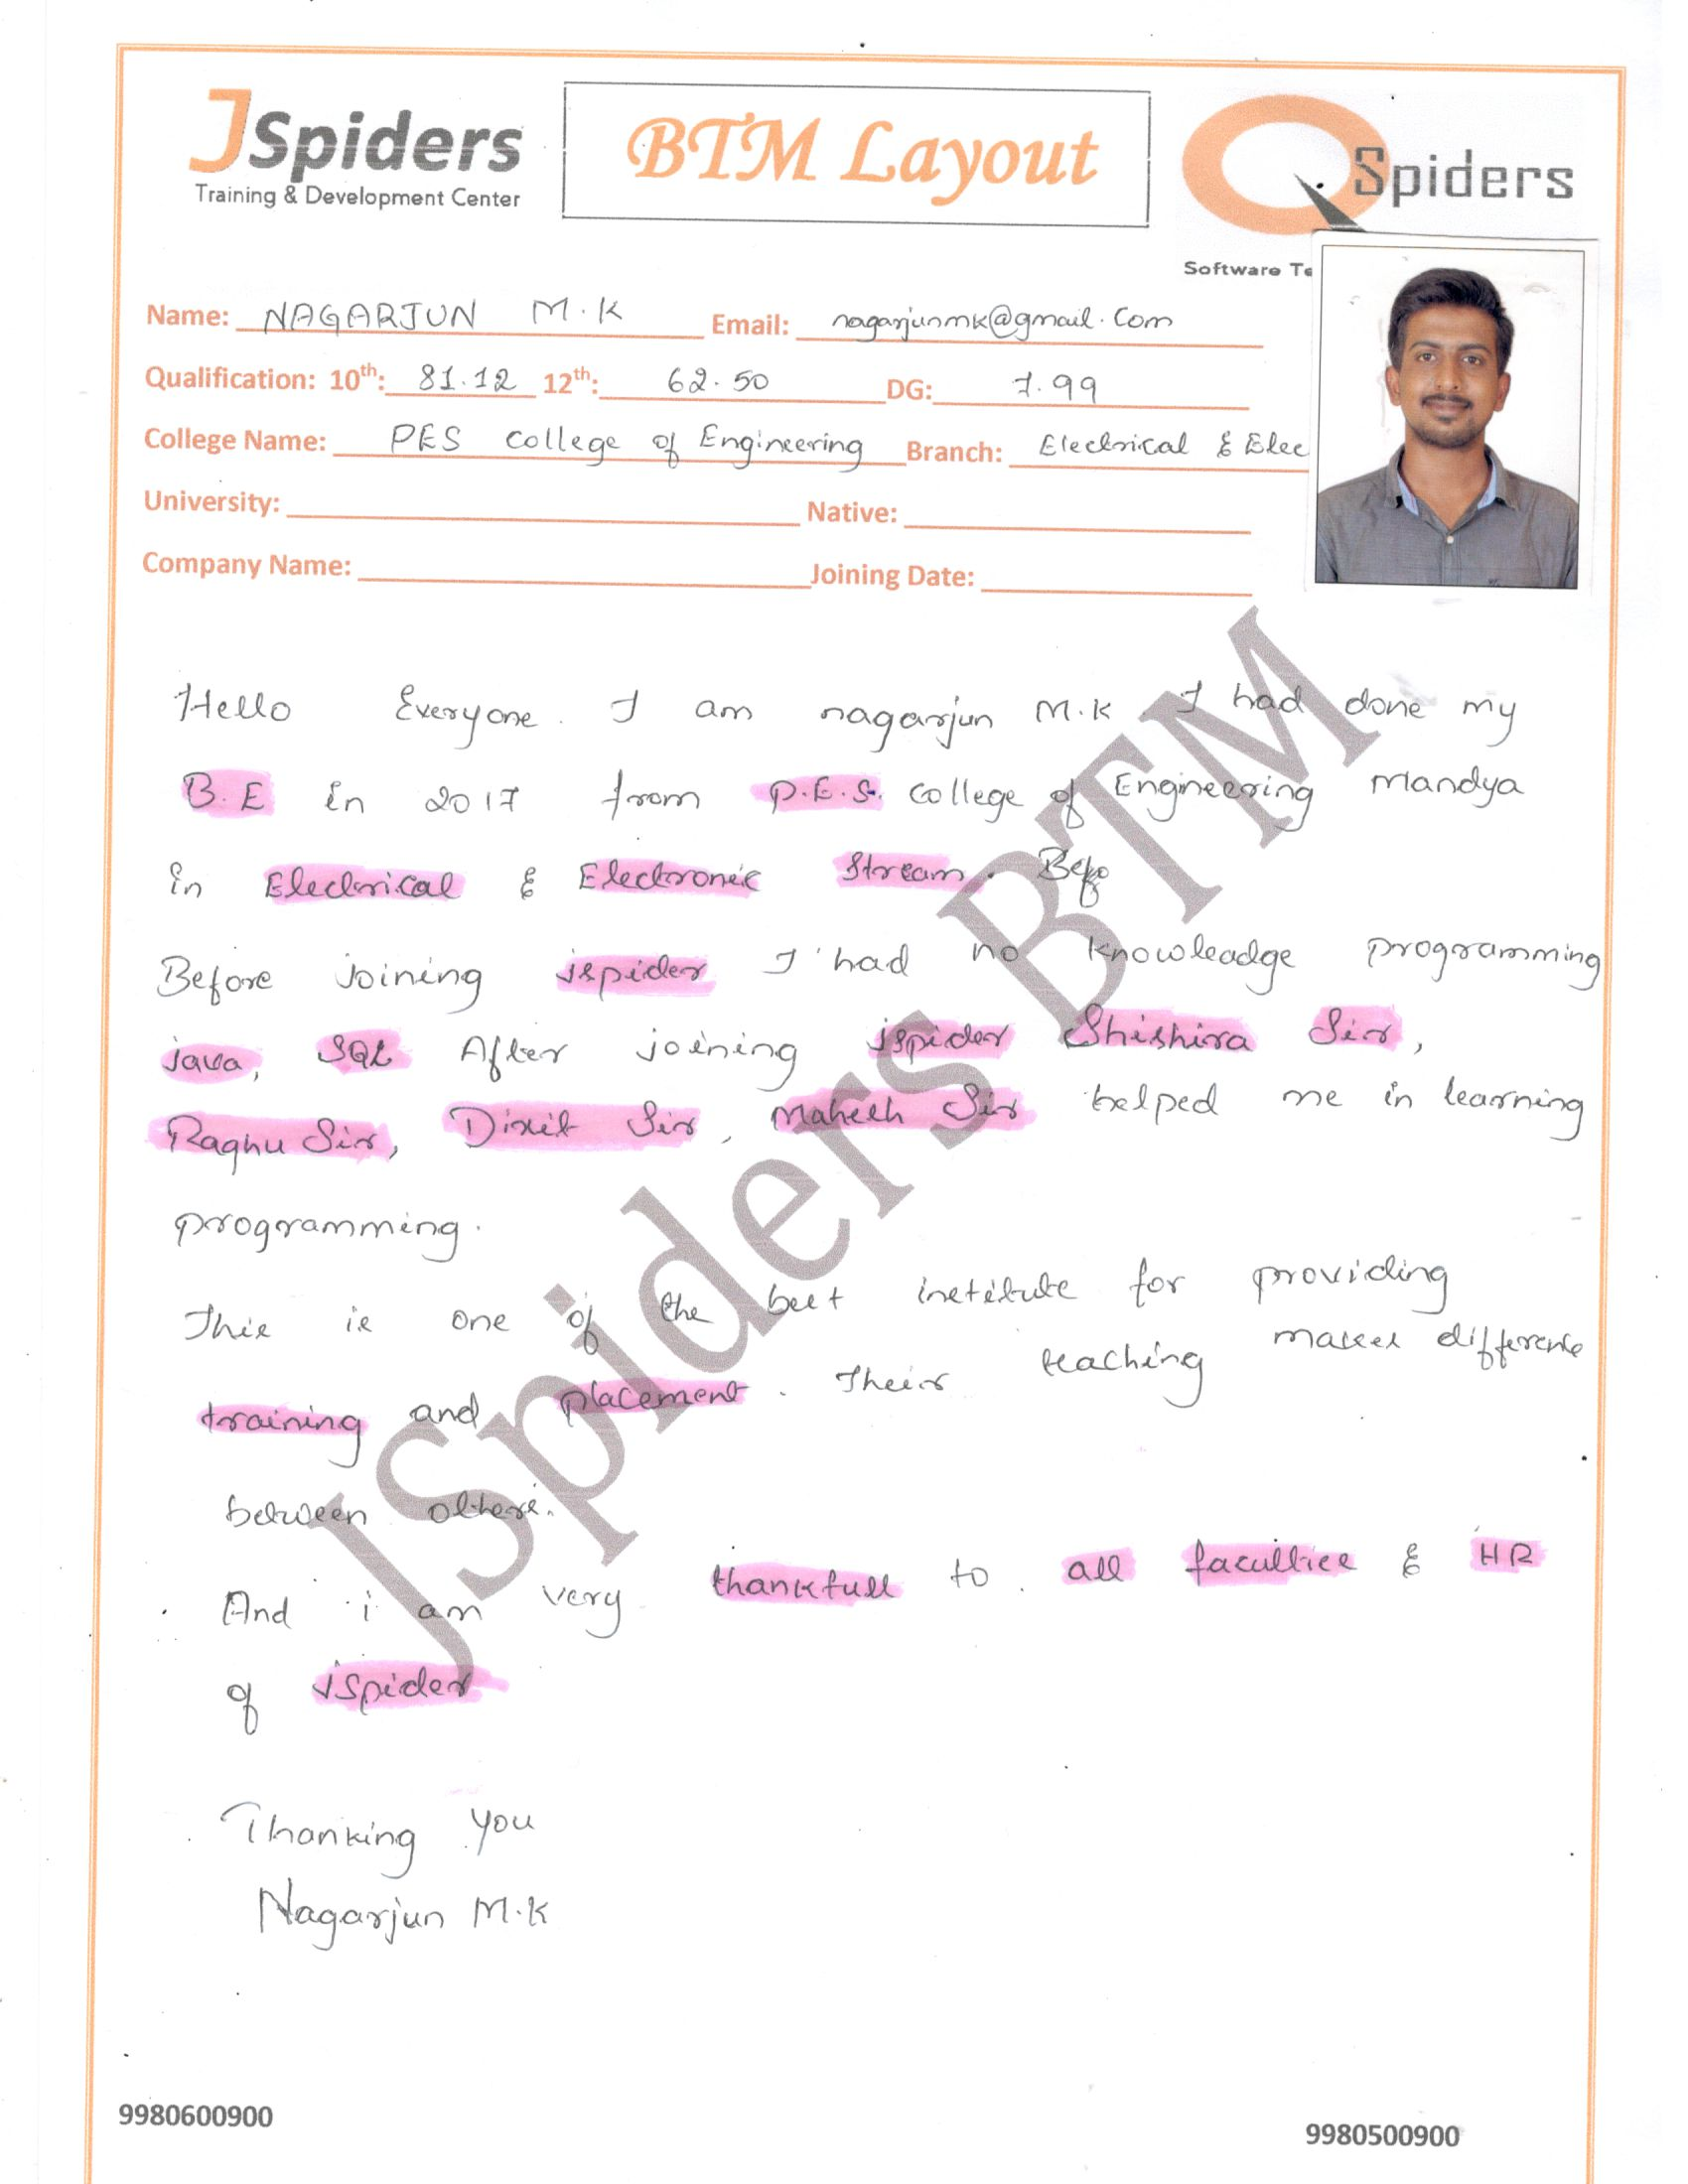 JSpiders
Training & Development Center
BTM Layout
QSpiders
Software Te
Name: NAGARJUN M.K Email: nagarjunmk@gmail.com
Qualification: 10th: 81.12 12th: 62.50 DG: 7.99
College Name: PES College of Engineering Branch: Electrical & Elec
University: Native:
Company Name: Joining Date:
Hello Everyone. I am nagarjun M.K. I had done my
B.E in 2017 from P.E.S. College of Engineering Mandya
in Electrical & Electronic Stream. Befo
Before joining jspider I had no knowleadge programming
java, SQL After joining jspider Shishira Sir,
Raghu Sir, Dixit Sir, Mahesh Sir helped me in learning
programming.
This is one of the best institute for providing
training and placement. Their teaching makes difference
between others.
And i am very thankfull to all faculties & HR
of jspider
Thanking you
Nagarjun M.K
JSpiders BTM
9980600900
9980500900